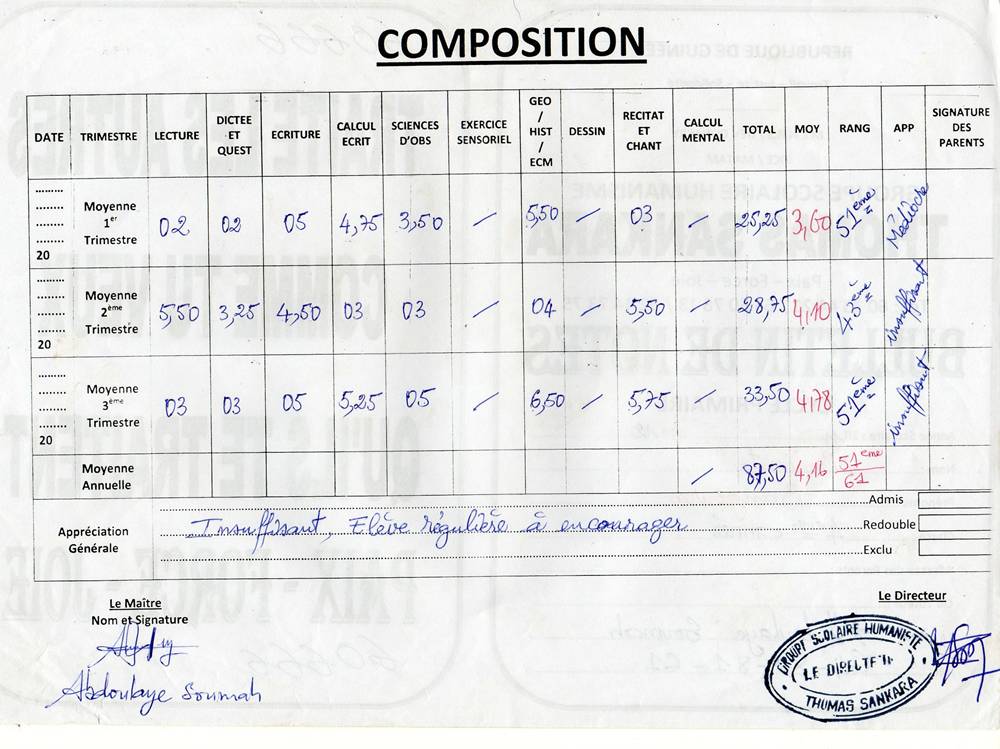 COMPOSITION
DATE TRIMESTRE LECTURE DICTEE ET QUEST ECRITURE CALCUL ECRIT SCIENCES D'OBS EXERCICE SENSORIEL GEO / HIST / ECM DESSIN RECITAT ET CHANT CALCUL MENTAL TOTAL MOY RANG APP SIGNATURE DES PARENTS
20 Moyenne 1er Trimestre 02 02 05 4,75 3,50 / 5,50 / 03 / 25,25 3,60 51ème Médiocre
20 Moyenne 2ème Trimestre 5,50 3,25 4,50 03 03 / 04 / 5,50 / 28,75 4,10 43ème insuffisant
20 Moyenne 3ème Trimestre 03 03 05 5,25 05 / 6,50 / 5,75 33,50 4,78 51ème insuffisant
Moyenne Annuelle / 87,50 4,16 51ème/61
Appréciation Générale
Insuffisant, Elève régulière à encourager
Admis
Redouble
Exclu
Le Maître
Nom et Signature
Abdoulaye Soumah
Le Directeur
GROUPT SCOLAIRE HUMANISTE
LE DIRECTEUR
THUMAS SANKARA